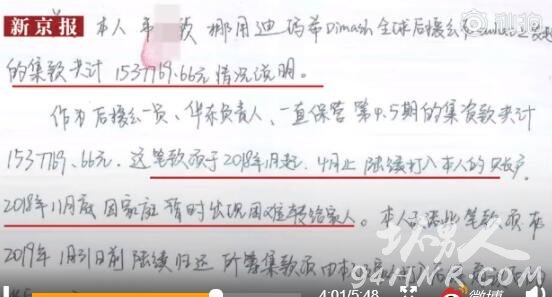 新京报
秒拍
本人 挪用迪玛希Dimash全球后援会
的集款共计 1537769.66元 情况说明。
作为后援会一员、华东负责人、一直保管第4.5期的集资款共计
1537769.66元. 这笔款项于2018年1月起. 4月止 陆续打入本人的账户
2018年11月底 因家庭暂时出现困难转给家人。本人 此笔款项在
2019年1月31日前 陆续归还 所筹集款项由本
坏男人
94HNR.COM
4:01/5:48
微博